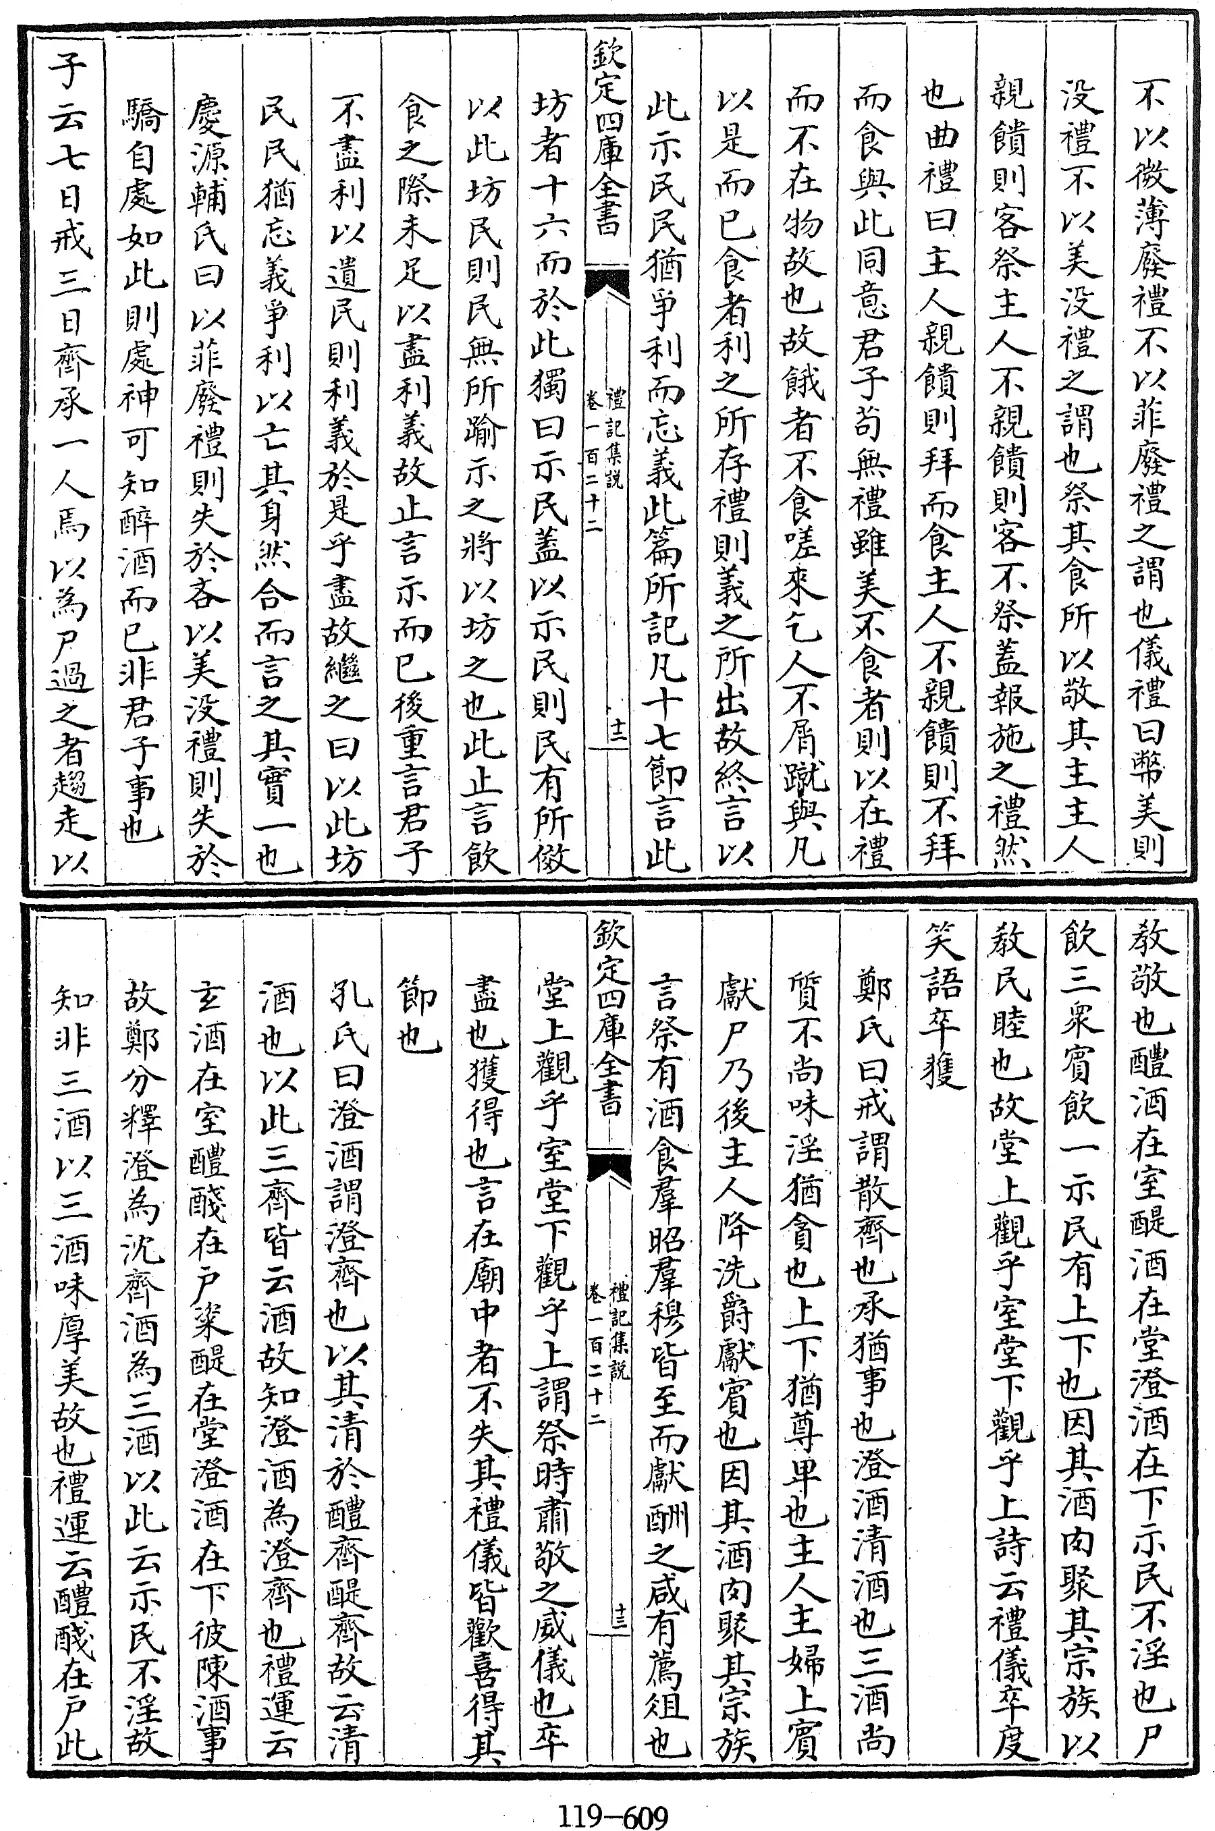 不以微薄廢禮不以菲廢禮之謂也儀禮曰幣美則
没禮不以美没禮之謂也祭其食所以敬其主主人
親饋則客祭主人不親饋則客不祭蓋報施之禮然
也曲禮曰主人親饋則拜而食主人不親饋則不拜
而食與此同意君子茍無禮雖美不食者則以在禮
而不在物故也故餓者不食嗟來乞人不屑蹴與凡
以是而已食者利之所存禮則義之所出故終言以
此示民民猶爭利而忘義此篇所記凡十七節言此
欽定四庫全書
禮記集説
卷一百二十二
十二
坊者十六而於此獨曰示民蓋以示民則民有所倣
以此坊民則民無所踰示之將以坊之也此止言飲
食之際未足以盡利義故止言示而已後重言君子
不盡利以遺民則利義於是乎盡故繼之曰以此坊
民民猶忘義爭利以亡其身然合而言之其實一也
慶源輔氏曰以菲廢禮則失於吝以美没禮則失於
驕自處如此則處神可知醉酒而已非君子事也
子云七日戒三日齊承一人焉以為尸過之者趨走以
教敬也醴酒在室醍酒在堂澄酒在下示民不淫也尸
飲三衆賓飲一示民有上下也因其酒肉聚其宗族以
教民睦也故堂上觀乎室堂下觀乎上詩云禮儀卒度
笑語卒獲
鄭氏曰戒謂散齊也承猶事也澄酒清酒也三酒尚
質不尚味淫猶貪也上下猶尊卑也主人主婦上賓
獻尸乃後主人降洗爵獻賓也因其酒肉聚其宗族
言祭有酒食羣昭羣穆皆至而獻酬之咸有薦俎也
欽定四庫全書
禮記集説
卷一百二十二
十三
堂上觀乎室堂下觀乎上謂祭時肅敬之威儀也卒
盡也獲得也言在廟中者不失其禮儀皆歡喜得其
節也
孔氏曰澄酒謂澄齊也以其清於醴齊醍齊故云清
酒也以此三齊皆云酒故知澄酒為澄齊也禮運云
玄酒在室醴醆在戸粢醍在堂澄酒在下彼陳酒事
故鄭分釋澄為沈齊酒為三酒以此云示民不淫故
知非三酒以三酒味厚美故也禮運云醴醆在戸此
119-609